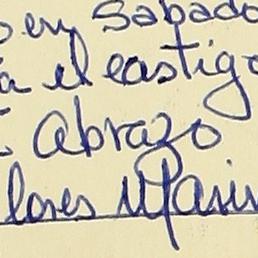 en Sabado
a el castigo
Abrazo
lores Marin